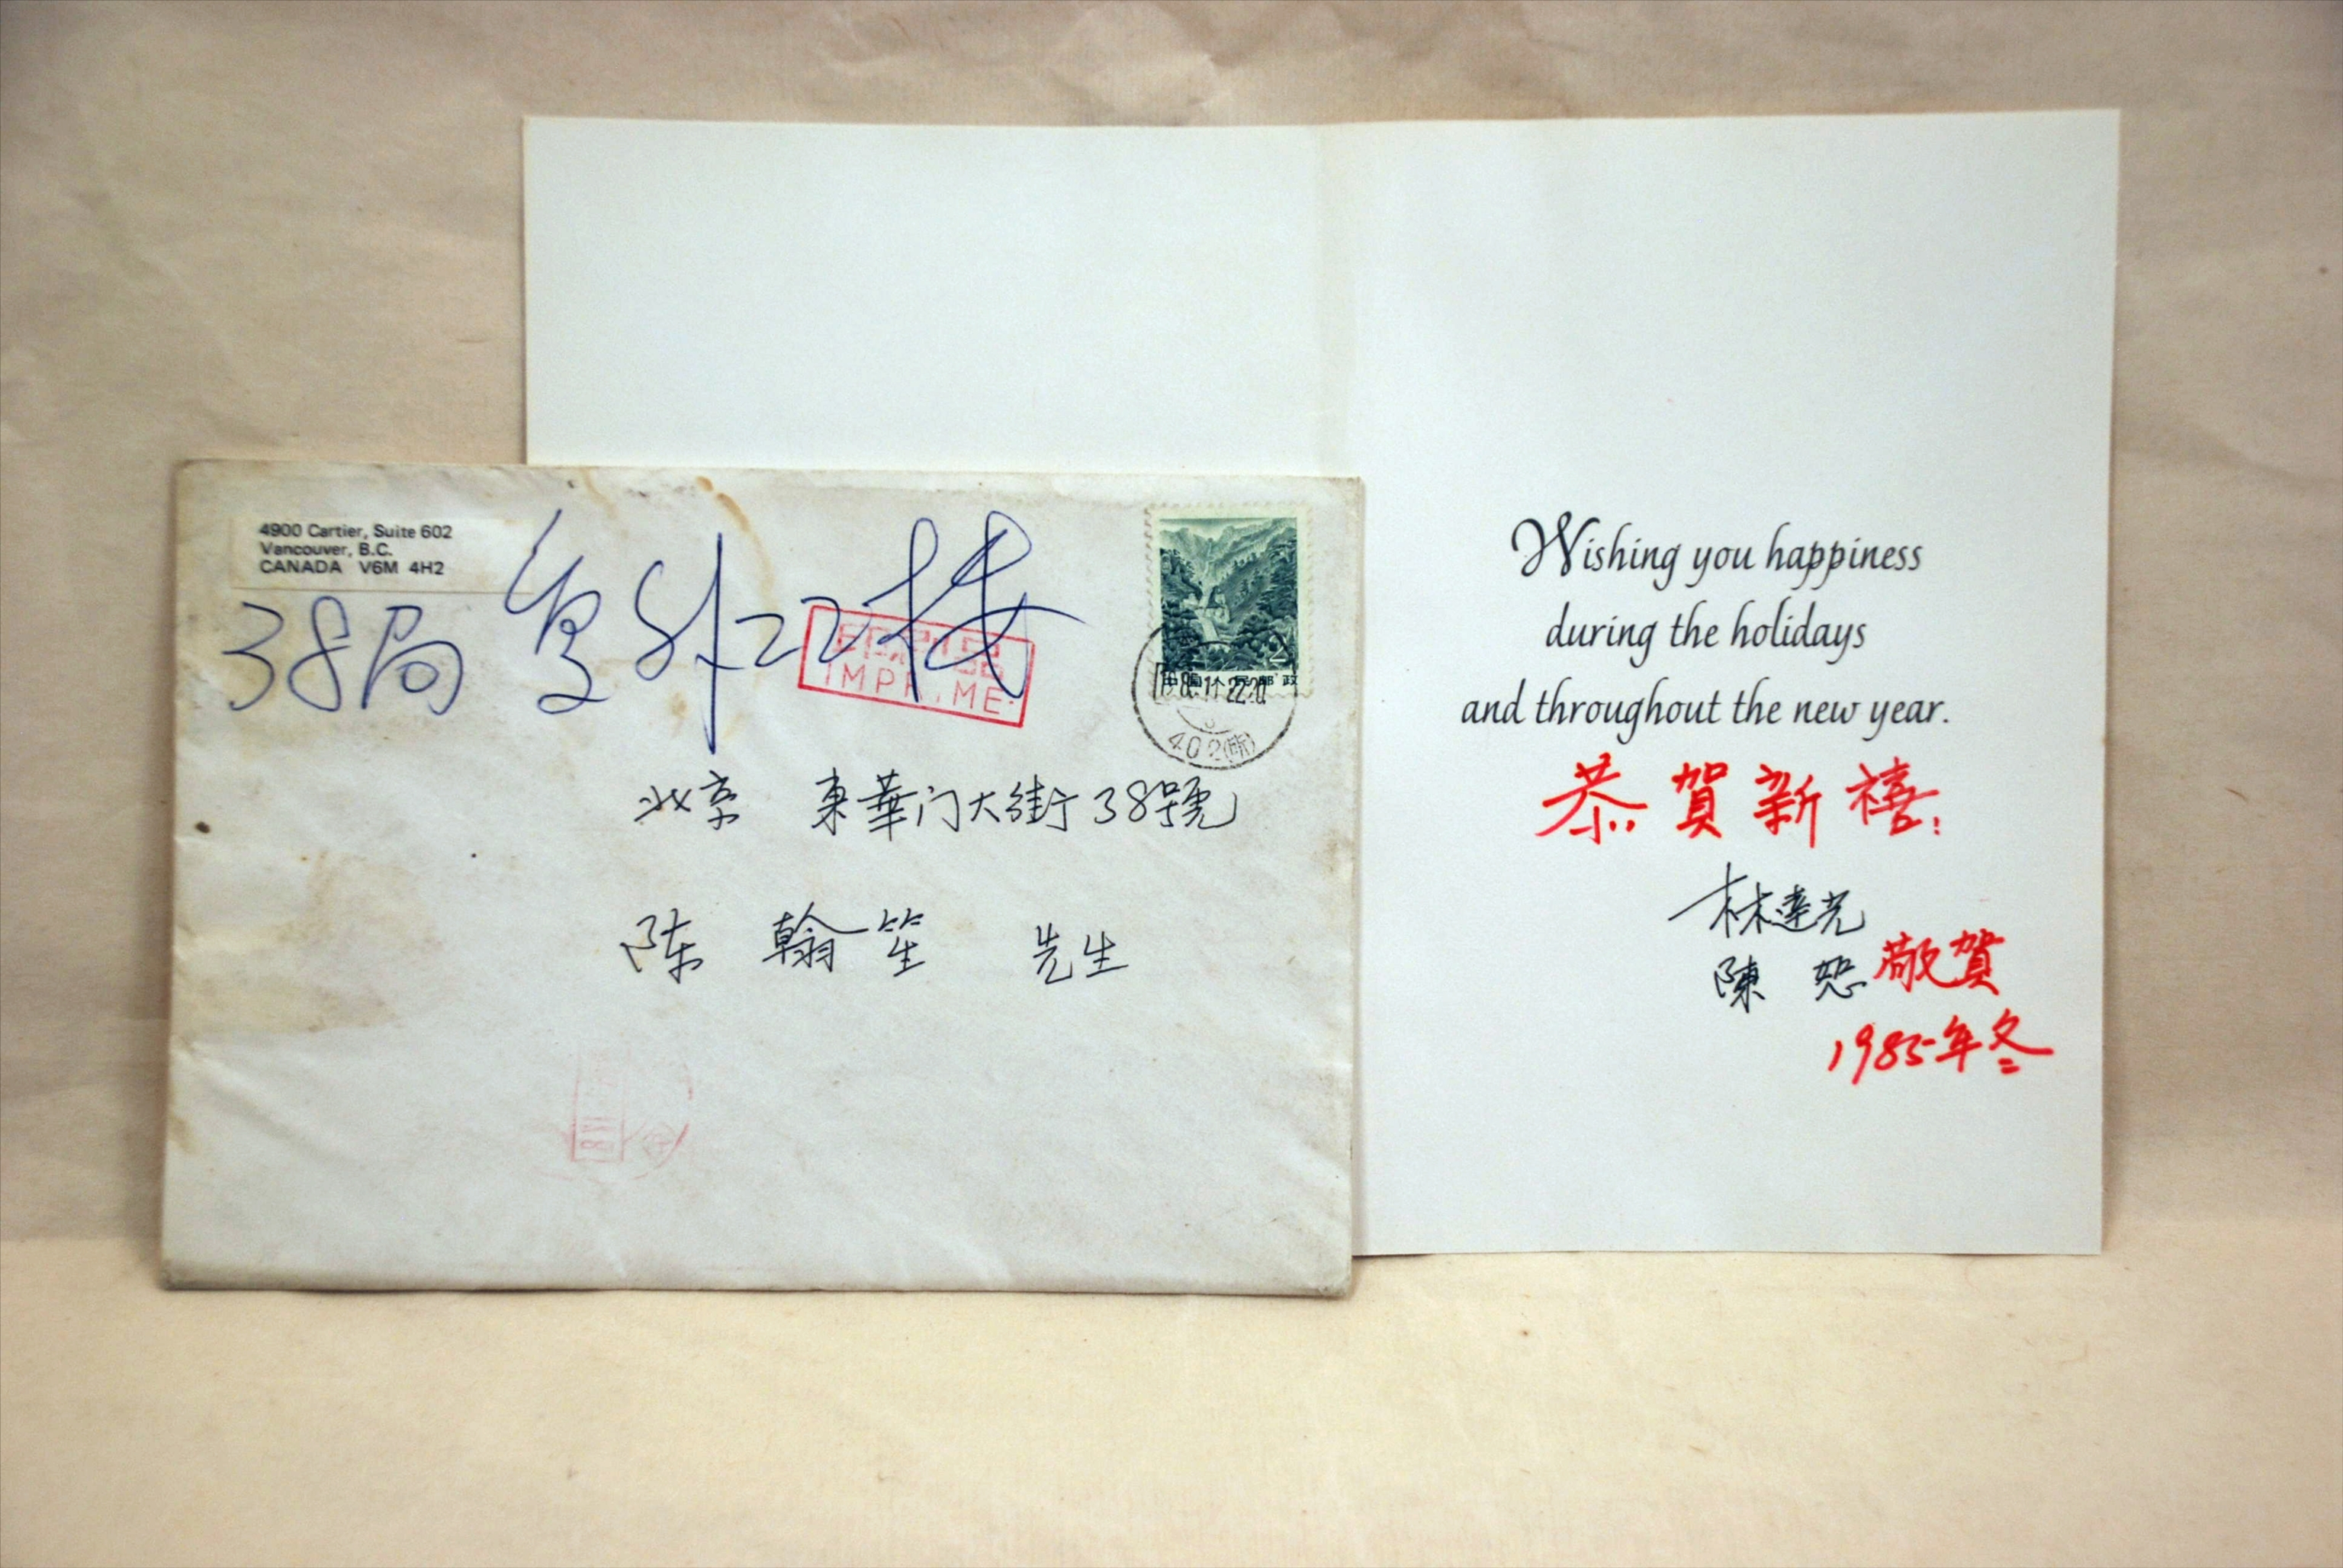 4900 Cartier, Suite 602
Vancouver, B.C.
CANADA V6M 4H2
38局 复外22楼
印刷品
IMPRIMÉ
2
中国人民邮政
402(所)
北京 東華门大街38號
陈 翰笙 先生
Wishing you happiness
during the holidays
and throughout the new year.
恭賀新禧!
林達光
陳 恕 敬賀
1985年冬